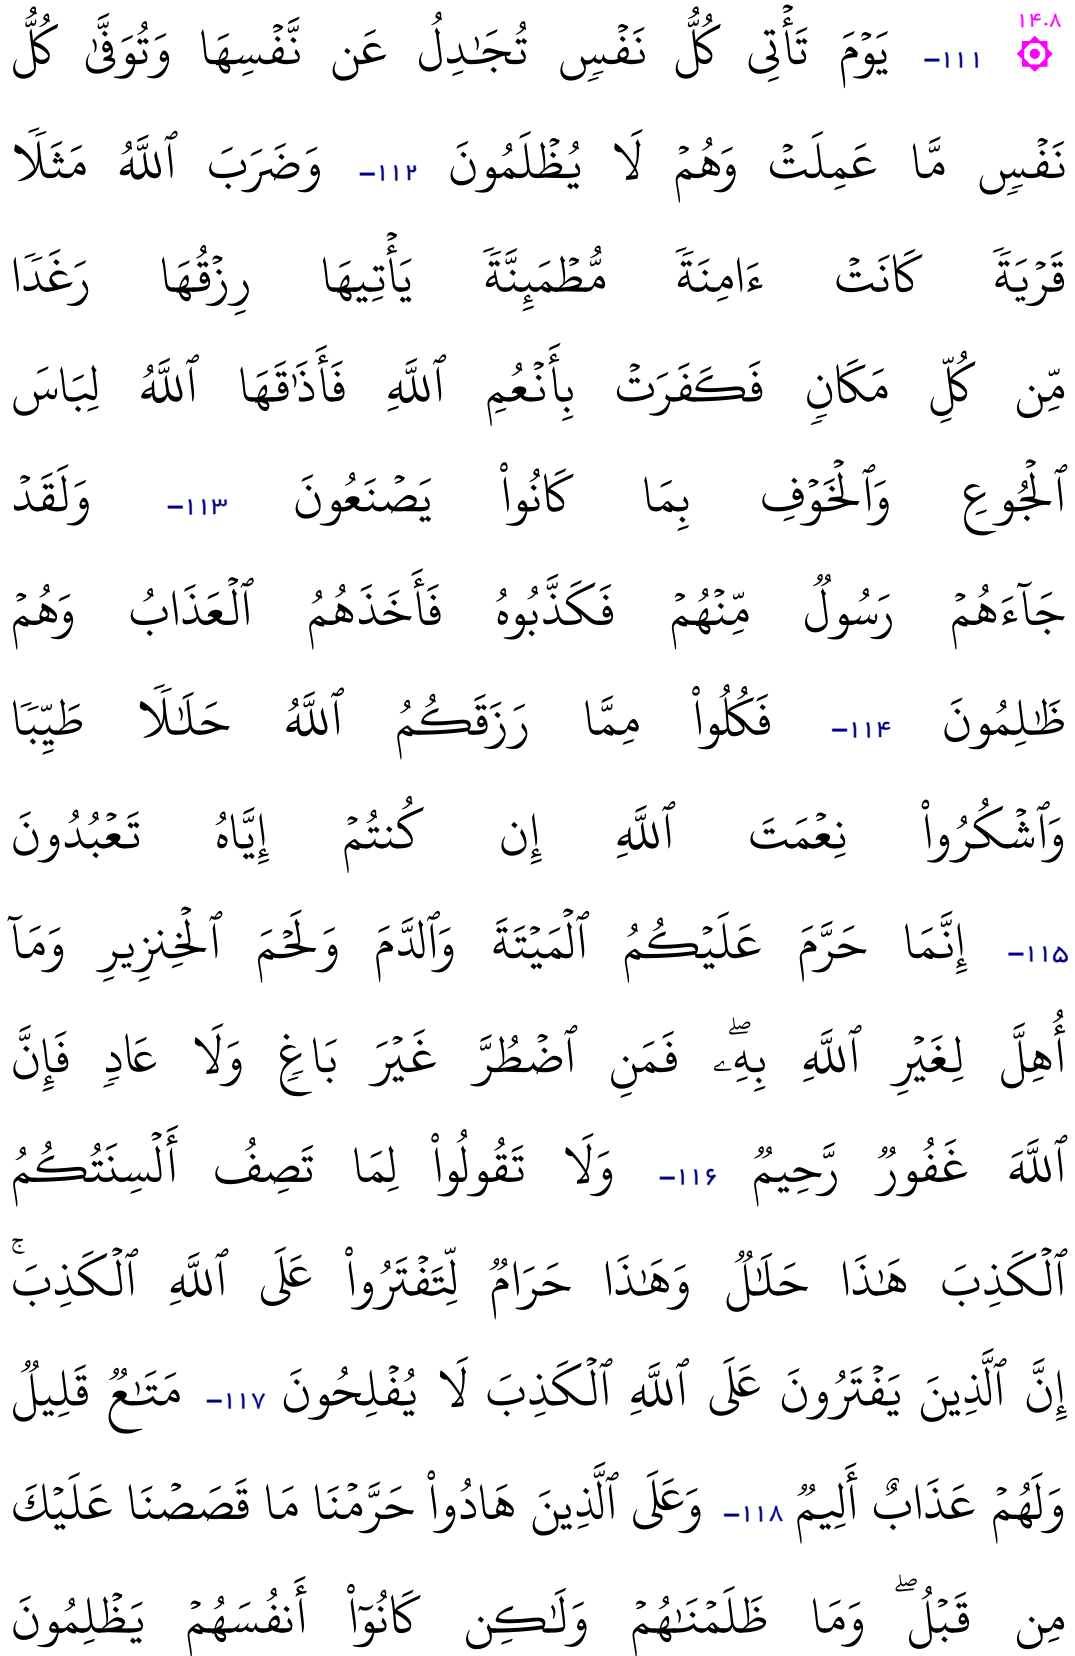 ۱۴۰۸
۞ ۱۱۱- يَوۡمَ تَأۡتِي كُلُّ نَفۡسٖ تُجَٰدِلُ عَن نَّفۡسِهَا وَتُوَفَّىٰ كُلُّ
نَفۡسٖ مَّا عَمِلَتۡ وَهُمۡ لَا يُظۡلَمُونَ ۱۱۲- وَضَرَبَ ٱللَّهُ مَثَلٗا
قَرۡيَةٗ كَانَتۡ ءَامِنَةٗ مُّطۡمَئِنَّةٗ يَأۡتِيهَا رِزۡقُهَا رَغَدٗا
مِّن كُلِّ مَكَانٖ فَكَفَرَتۡ بِأَنۡعُمِ ٱللَّهِ فَأَذَٰقَهَا ٱللَّهُ لِبَاسَ
ٱلۡجُوعِ وَٱلۡخَوۡفِ بِمَا كَانُواْ يَصۡنَعُونَ ۱۱۳- وَلَقَدۡ
جَآءَهُمۡ رَسُولٞ مِّنۡهُمۡ فَكَذَّبُوهُ فَأَخَذَهُمُ ٱلۡعَذَابُ وَهُمۡ
ظَٰلِمُونَ ۱۱۴- فَكُلُواْ مِمَّا رَزَقَكُمُ ٱللَّهُ حَلَٰلٗا طَيِّبٗا
وَٱشۡكُرُواْ نِعۡمَتَ ٱللَّهِ إِن كُنتُمۡ إِيَّاهُ تَعۡبُدُونَ
۱۱۵- إِنَّمَا حَرَّمَ عَلَيۡكُمُ ٱلۡمَيۡتَةَ وَٱلدَّمَ وَلَحۡمَ ٱلۡخِنزِيرِ وَمَآ
أُهِلَّ لِغَيۡرِ ٱللَّهِ بِهِۦۖ فَمَنِ ٱضۡطُرَّ غَيۡرَ بَاغٖ وَلَا عَادٖ فَإِنَّ
ٱللَّهَ غَفُورٞ رَّحِيمٞ ۱۱۶- وَلَا تَقُولُواْ لِمَا تَصِفُ أَلۡسِنَتُكُمُ
ٱلۡكَذِبَ هَٰذَا حَلَٰلٞ وَهَٰذَا حَرَامٞ لِّتَفۡتَرُواْ عَلَى ٱللَّهِ ٱلۡكَذِبَۚ
إِنَّ ٱلَّذِينَ يَفۡتَرُونَ عَلَى ٱللَّهِ ٱلۡكَذِبَ لَا يُفۡلِحُونَ ۱۱۷- مَتَٰعٞ قَلِيلٞ
وَلَهُمۡ عَذَابٌ أَلِيمٞ ۱۱۸- وَعَلَى ٱلَّذِينَ هَادُواْ حَرَّمۡنَا مَا قَصَصۡنَا عَلَيۡكَ
مِن قَبۡلُۖ وَمَا ظَلَمۡنَٰهُمۡ وَلَٰكِن كَانُوٓاْ أَنفُسَهُمۡ يَظۡلِمُونَ